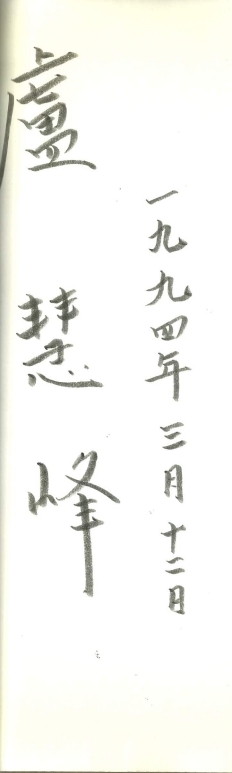 一九九四年三月十二日
盧慧峰